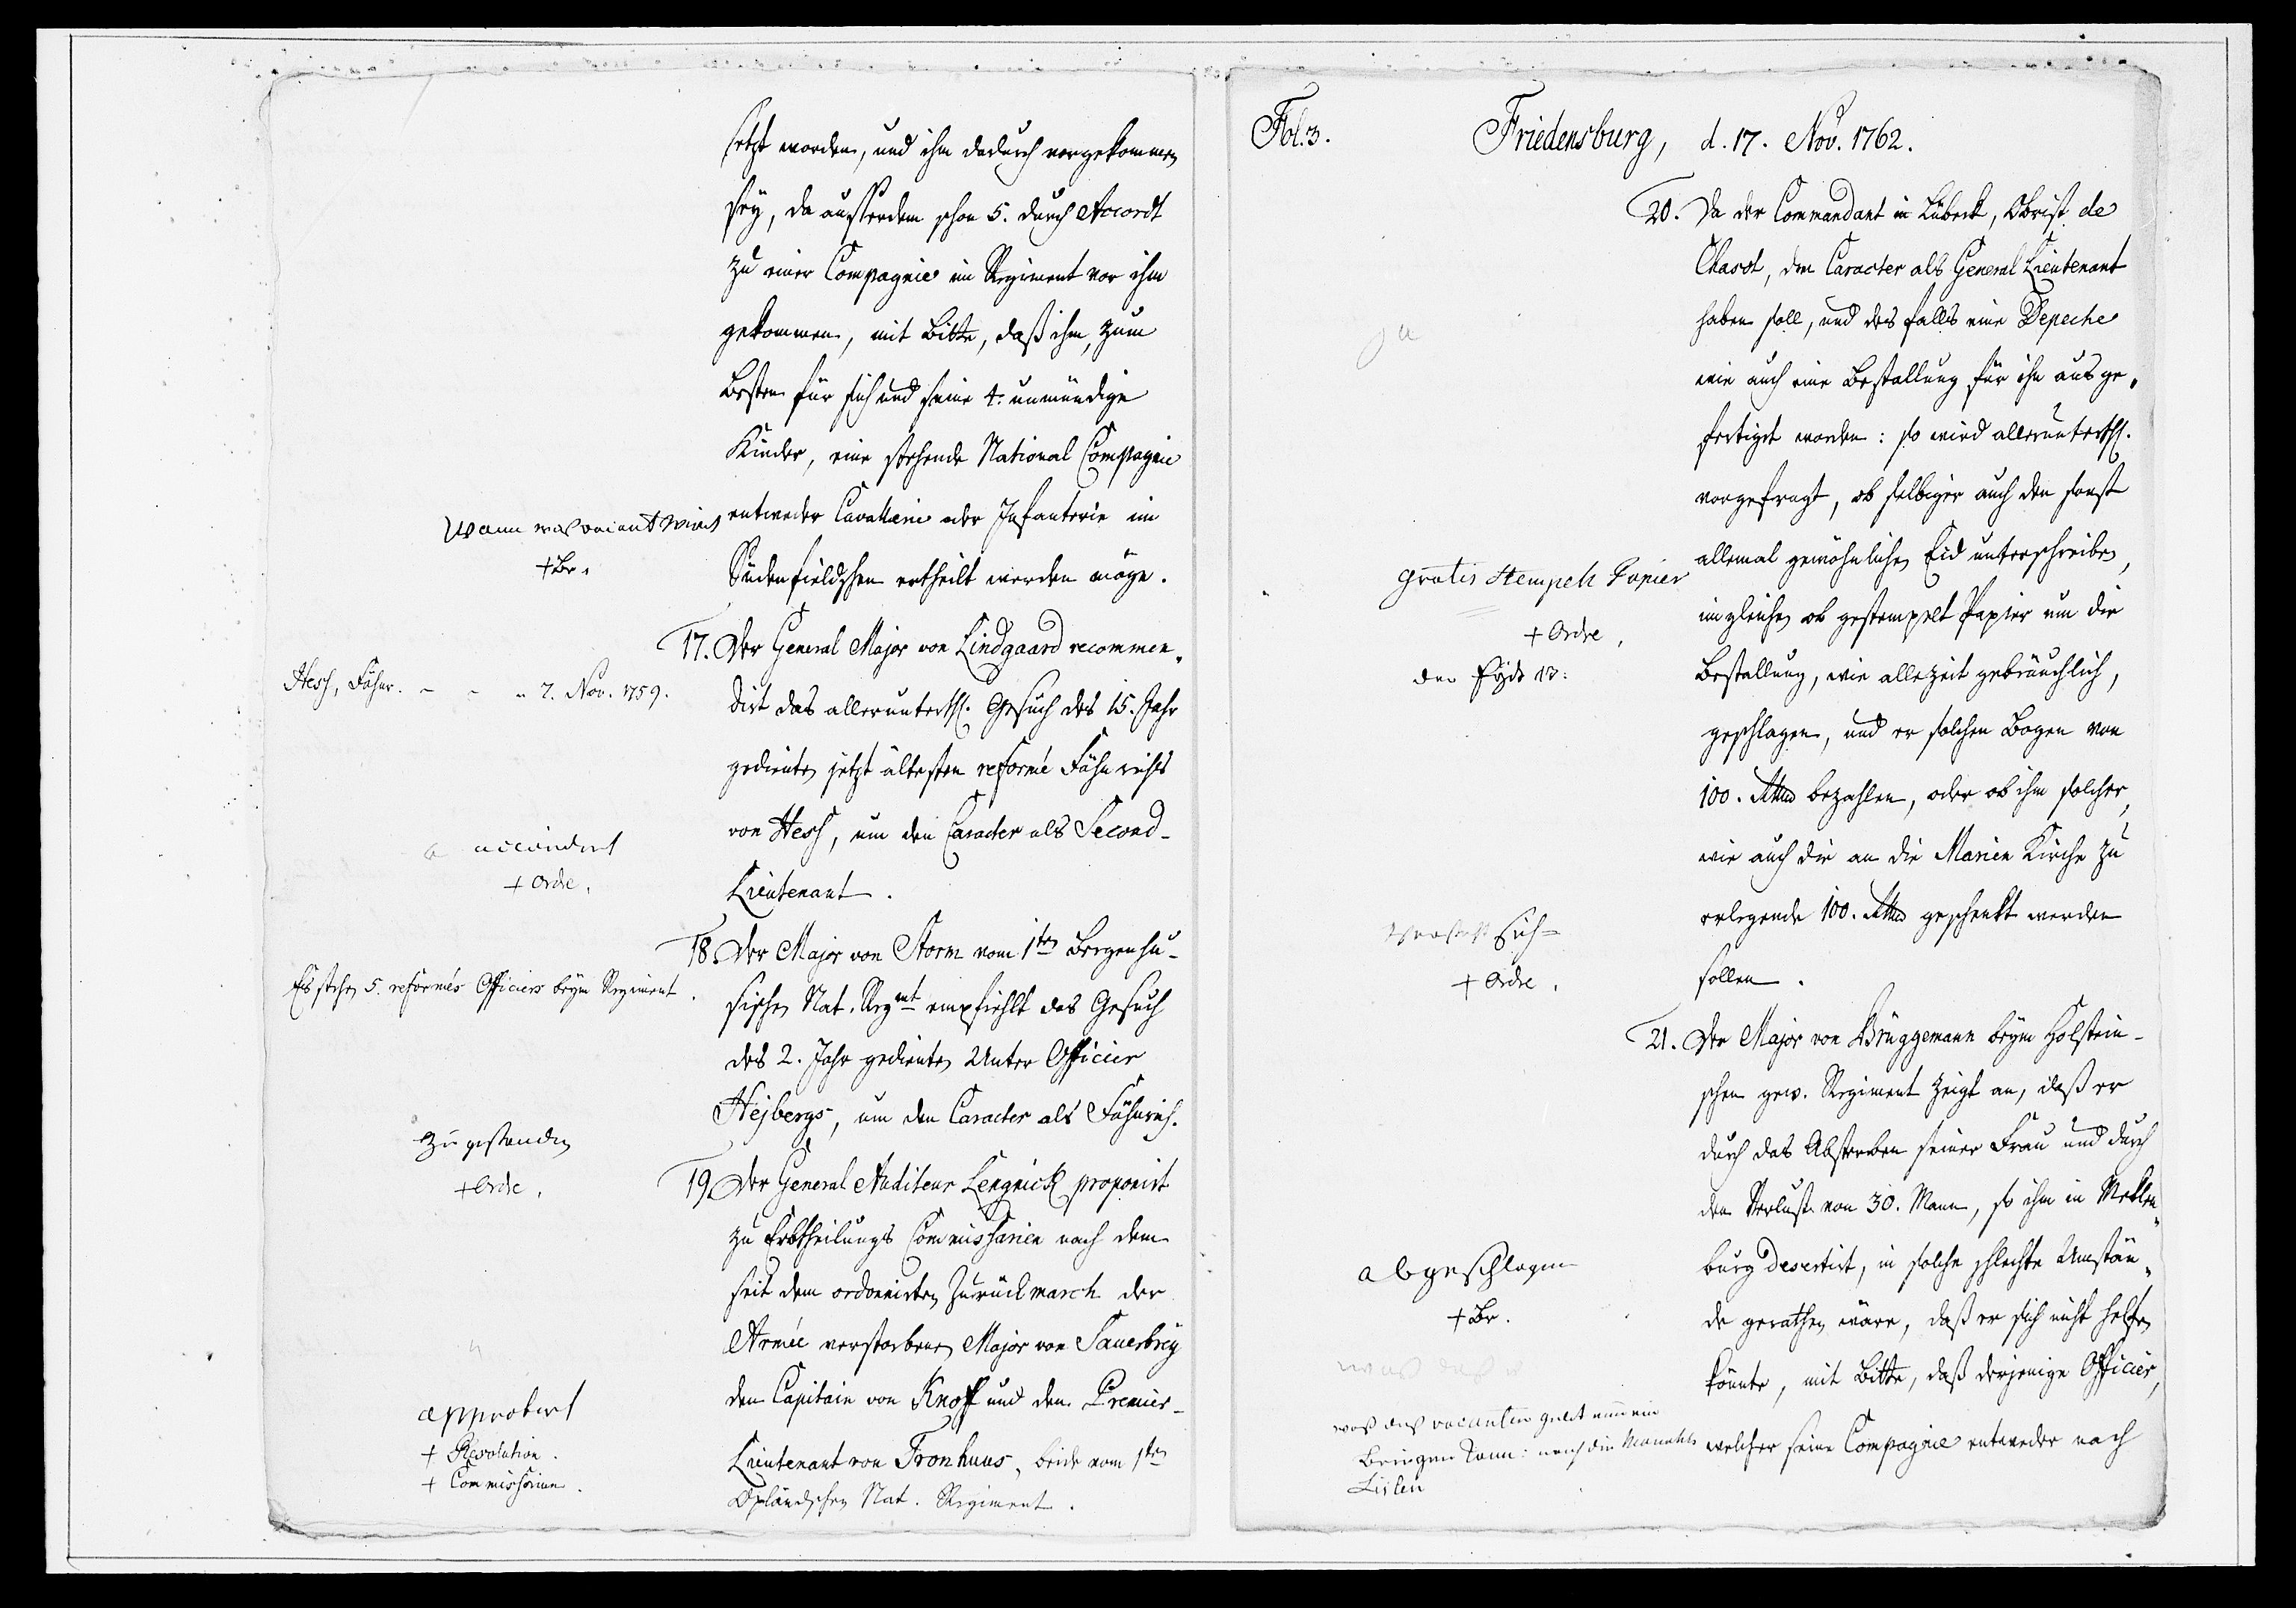 setzt worden, und ihm dadurch vorgekommen
sey, da ausserdem schon 5. durch Accordt
zu einer Compagnie im Regiment vor ihm
gekommen, mit Bitte, daß ihm, zum
Besten für sich und seine 4. unmündige
Kinder, eine stehende National Compagnie
entweder Cavallerie oder Infanterie im
Südenfieldschen ertheilt werden möge.
Wann was vacant wird
+ Br.
17. Der General Major von Lindgaard recommen„
dirt das allerunterth. Gesuch des 15. Jahr
gedienten jetzt ältesten reformé Fähnrichs
von Hess, um den Caracter als Second-
Lieutenant.
Hess, Fähnr. - - - 7. Nov. 1759.
accordirt
+ Ordre.
18. Der Major von Storm vom 1ten Bergenhu-
sischen Nat. Regmt empfiehlt das Gesuch
des 2. Jahr gedienten Unter Officier
Hejbergs, um den Caracter als Fähnrich.
Es stehen 5. reformés Officiers beym Regiment.
zugestanden
+ Ordre.
19. Der General Auditeur Lengnick proponirt
zu Erbtheilungs Commissarien nach dem
seit dem ordonnirten Zurückmarch der
Armée verstorbenen Major von Sauerbrey
den Capitain von Knoff und den Premier-
Lieutenant von Fronhuus, beide vom 1ten
Opländschen Nat. Regiment.
approbirt
+ Resolution.
+ Commissorium.
Fol. 3.
Friedensburg, d. 17. Nov. 1762.
20. Da der Commandant in Lübeck, Obrist de
Chasot, den Caracter als General Lieutenant
haben soll, und des falls eine Depeche
wie auch eine Bestallung für ihn ausge„
fertiget worden: so wird allerunterth.
vorgefragt, ob selbiger auch den sonst
allemal gewöhnlichen Eid unterschreiben,
imgleichen ob gestempelt Papier um die
Bestallung, wie allezeit gebräuchlich,
geschlagen, und er solchen Bogen von
100. Rthlr bezahlen, oder ob ihm solcher,
wie auch die an die Marien Kirche zu
erlegende 100. Rthlr geschenkt werden
sollen.
ja
gratis Stempelt Papier
+ Ordre.
den Eydt
versteht sich
+ Ordre.
21. Der Major von Brüggemann beym Holstein-
schen gew. Regiment zeigt an, daß er
durch das Absterben seiner Frau und durch
den Verlust von 30. Mann, so ihm in Meklen„
burg desertirt, in solche schlechte Umstän„
de gerathen wäre, daß er sich nicht helfen
könnte, mit Bitte, daß derjenige Officier,
welcher seine Compagnie entweder nach
abgeschlagen
+ Br.
was das
was das vacanten
Bringen kann: nach die
Listen